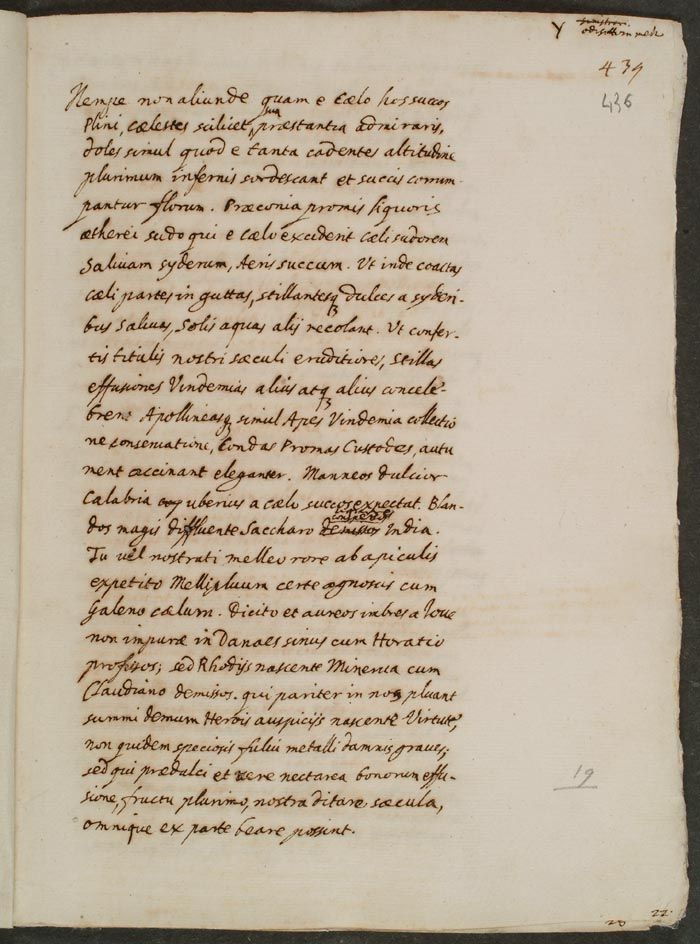 Y
439
436
Nempe non aliunde quam e Cælo hos succos
Plini, cælestes scilicet, sua præstantia admiraris,
doles simul quod e tanta cadentes altitudine
plurimum infernis sordescant et succis corrum-
pantur florum. Præconia promis liquoris
ætherei sudo qui e cælo exciderit cæli sudorem
Salivam syderum, Aeris succum. Ut inde coactas
cæli partes in guttas, stillantesq; dulces a syderi-
bus salivas, Solis aquas alij recolant. Ut confer-
tis titulis nostri sæculi eruditiores, stillas
effusiones Vindemias alius atq; alius concele-
brent Apollineasq; simul Apes Vindemia collectio
ne conservatione, Condas Promas Custodes, autu
ment ac cinant eleganter. Manneos dulcior
Calabria uberius a cælo succos expectat. Blan-
dos magis diffluente Saccharo demissos India.
Tu vel nostrati melleo rore ab apiculis
expetito Mellipluum certe agnoscis cum
Galeno cælum. Dicito et aureos imbres a Iove
non impuræ in Danaes sinus cum Horatio
profusos; sed Rhodijs nascente Minerva cum
Claudiano demissos. qui pariter in nos pluant
summi demum Herois auspicijs nascente Virtute,
non quidem speciosis fulvi metalli damnis graves;
sed qui prædulci et vere nectarea bonorum effu-
sione, fructu plurimo, nostra ditare sæcula,
omnique ex parte beare possint.
19
22.